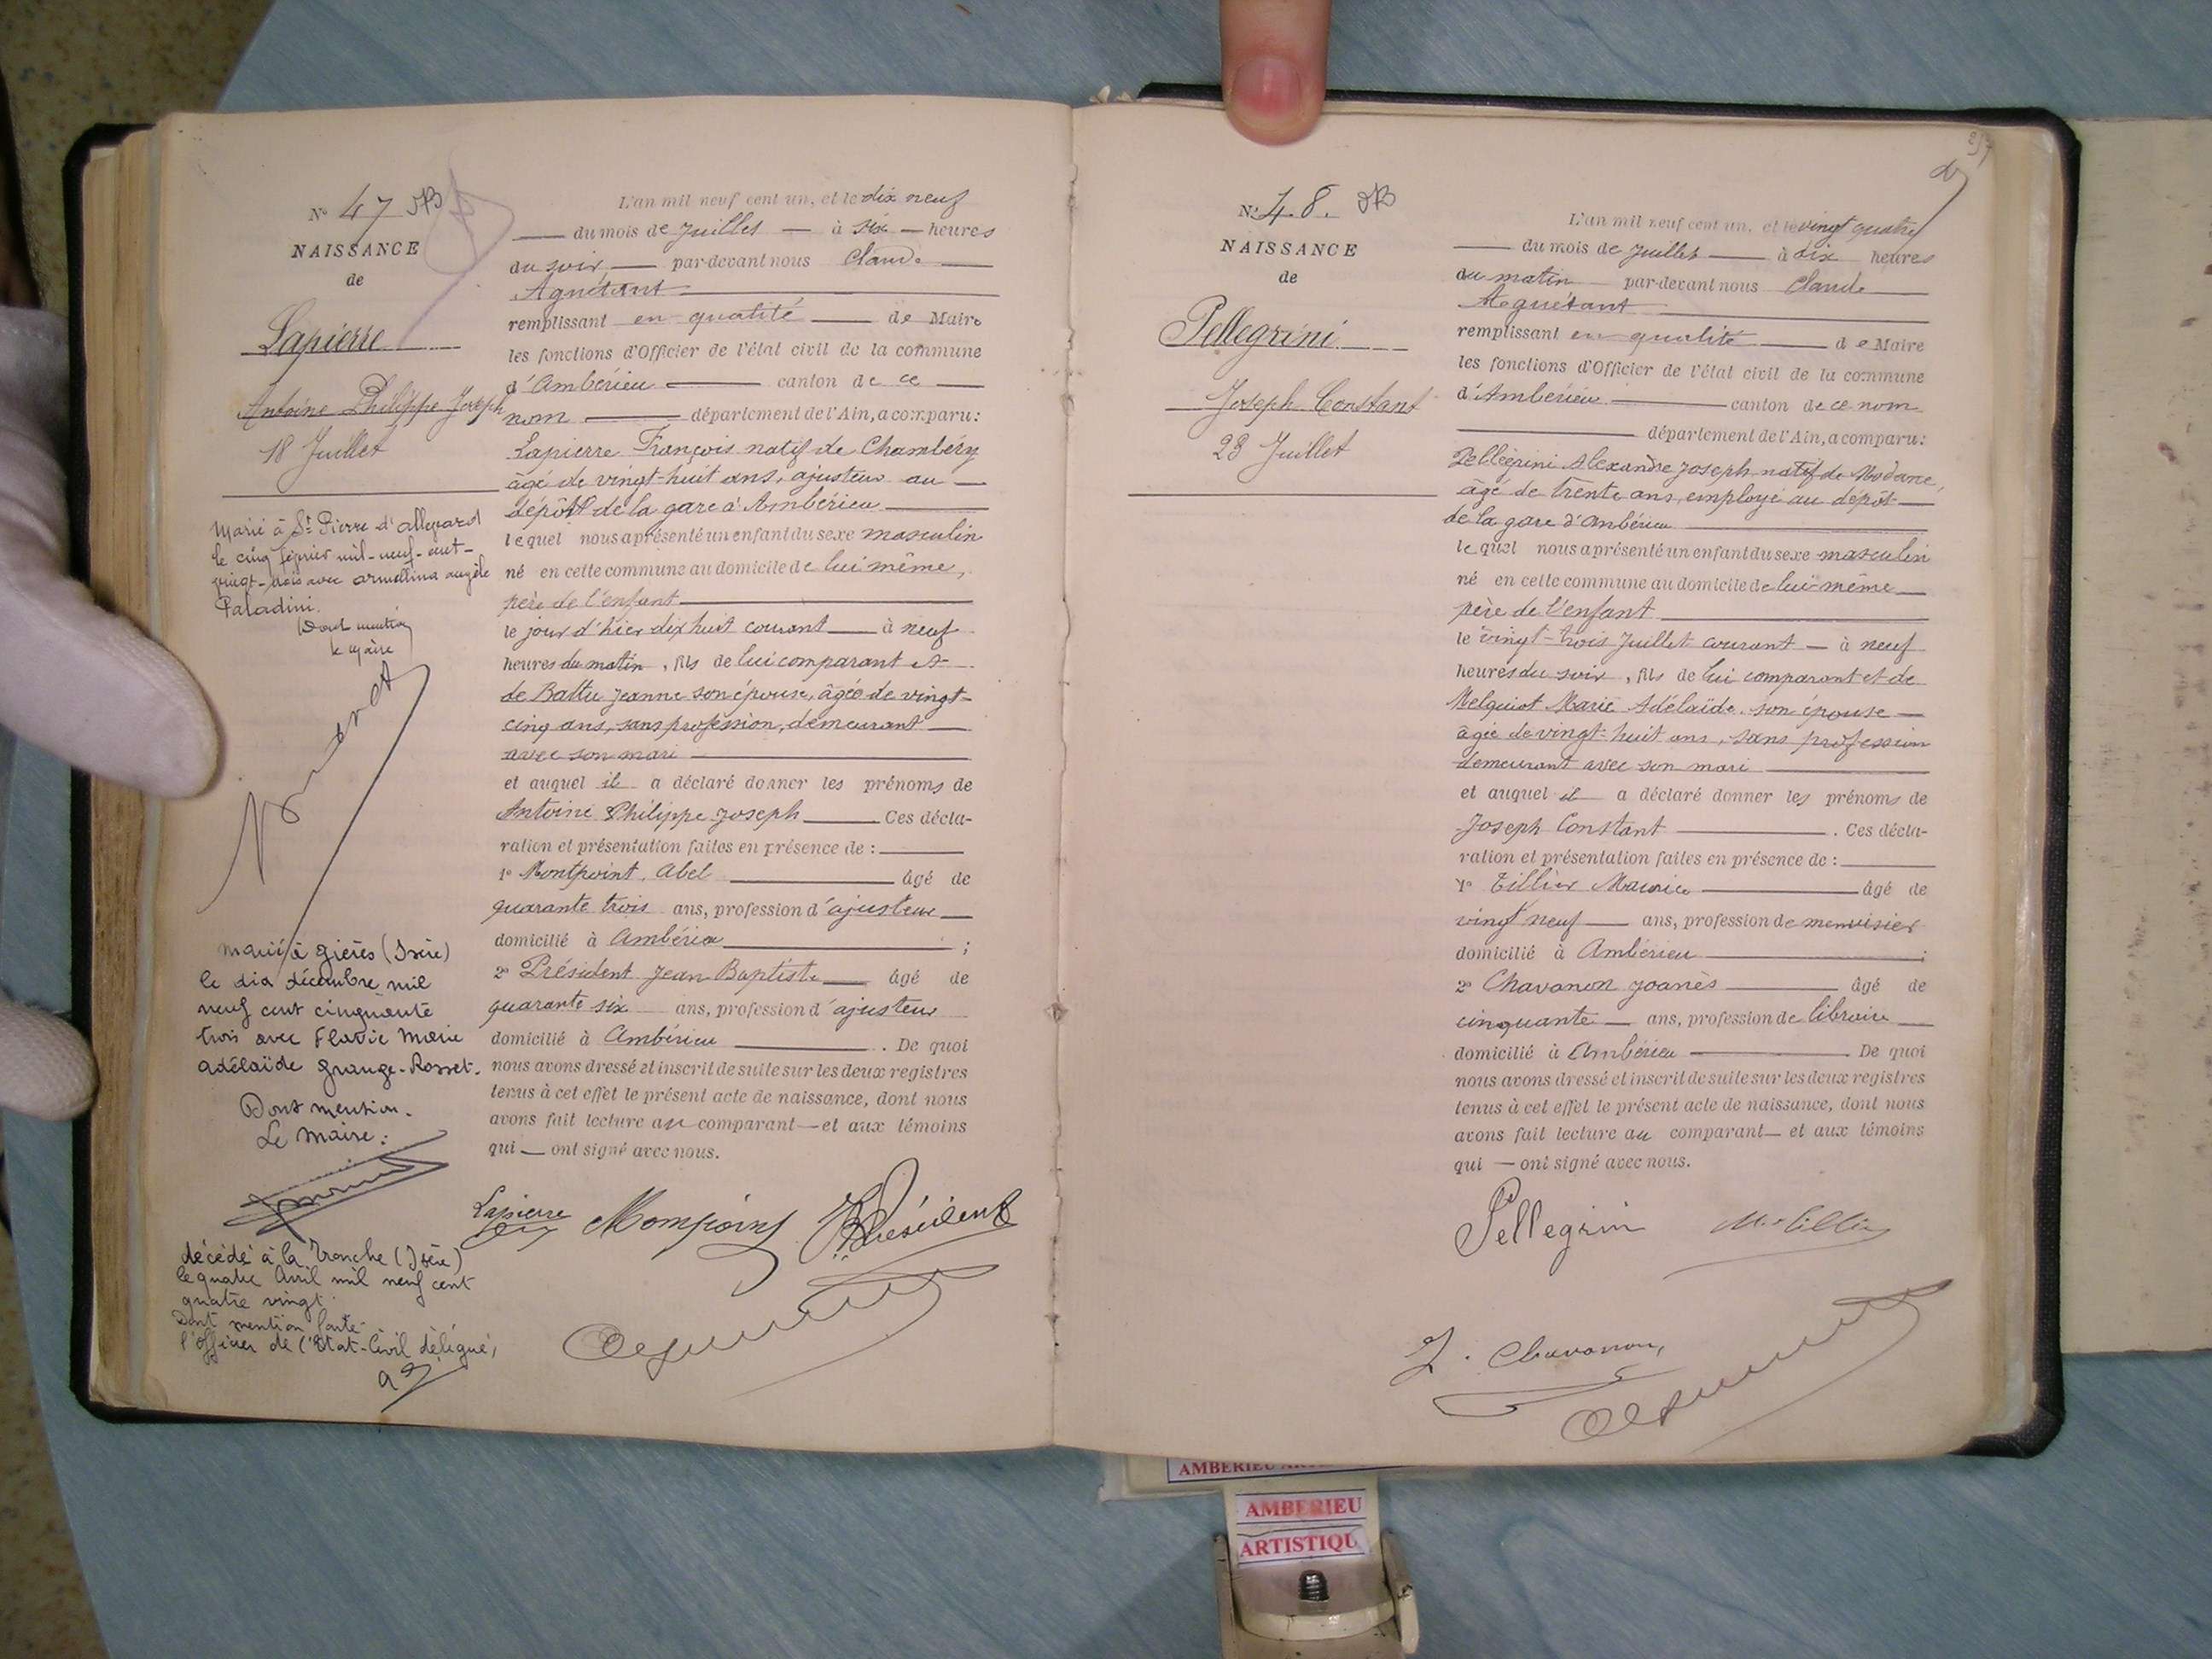 N° 47
NAISSANCE
de
Lapierre
Antoine Philippe Joseph
18 Juillet
Marié à St Pierre d'Allevard
le cinq février mil-neuf-cent-
vingt-trois avec Armellina Angèle
Paladini.
Dont mention
le Maire
Marié à Gières (Isère)
le dix décembre mil
neuf cent cinquante
trois avec Flavie Marie
Adélaïde Grange-Rosset.
Dont mention.
Le Maire:
décédé à la Tronche (Isère)
le quatre Avril mil neuf cent
quatre vingt.
Dont mention faite
l'Officier de l'Etat-Civil délégué,
L'an mil neuf cent un, et le dix neuf
du mois de Juillet à six heures
du soir, par-devant nous Claude
Aguétant
remplissant en qualité de Maire
les fonctions d'Officier de l'état civil de la commune
d'Ambérieu canton de ce
nom département de l'Ain, a comparu:
Lapierre François natif de Chambéry
âgé de vingt-huit ans, ajusteur au
dépôt de la gare d'Ambérieu
lequel nous a présenté un enfant du sexe masculin
né en cette commune au domicile de lui même,
père de l'enfant
le jour d'hier dix huit courant à neuf
heures du matin, fils de lui comparant et
de Battu Jeanne son épouse, âgée de vingt-
cinq ans, sans profession, demeurant
avec son mari
et auquel il a déclaré donner les prénoms de
Antoine Philippe Joseph Ces décla-
ration et présentation faites en présence de :
1° Montpoint, Abel âgé de
quarante trois ans, profession d'ajusteur
domicilié à Ambérieu ;
2° Président Jean Baptiste âgé de
quarante six ans, profession d'ajusteur
domicilié à Ambérieu . De quoi
nous avons dressé et inscrit de suite sur les deux registres
tenus à cet effet le présent acte de naissance, dont nous
avons fait lecture au comparant et aux témoins
qui ont signé avec nous.
Lapierre Mompoint Président
N° 48.
NAISSANCE
de
Pellegrini
Joseph Constant
23 Juillet
L'an mil neuf cent un, et le vingt quatre
du mois de Juillet à dix heures
du matin par-devant nous Claude
Aguétant
remplissant en qualité de Maire
les fonctions d'Officier de l'état civil de la commune
d'Ambérieu canton de ce nom
département de l'Ain, a comparu:
Pellégrini Alexandre Joseph natif de Modane,
âgé de trente ans, employé au dépôt
de la gare d'Ambérieu
lequel nous a présenté un enfant du sexe masculin
né en cette commune au domicile de lui-même
père de l'enfant
le vingt-trois Juillet courant à neuf
heures du soir, fils de lui comparant et de
Melquiot Marie Adélaïde son épouse
âgée de vingt-huit ans, sans profession
demeurant avec son mari
et auquel il a déclaré donner les prénoms de
Joseph Constant . Ces décla-
ration et présentation faites en présence de :
1° Tillier Maurice âgé de
vingt neuf ans, profession de menuisier
domicilié à Ambérieu ;
2° Chavanon Joanès âgé de
cinquante ans, profession de libraire
domicilié à Ambérieu De quoi
nous avons dressé et inscrit de suite sur les deux registres
tenus à cet effet le présent acte de naissance, dont nous
avons fait lecture au comparant et aux témoins
qui ont signé avec nous.
Pellegrin M. Tillier
J. Chavanon,
AMBERIEU
AMBERIEU
ARTISTIQU